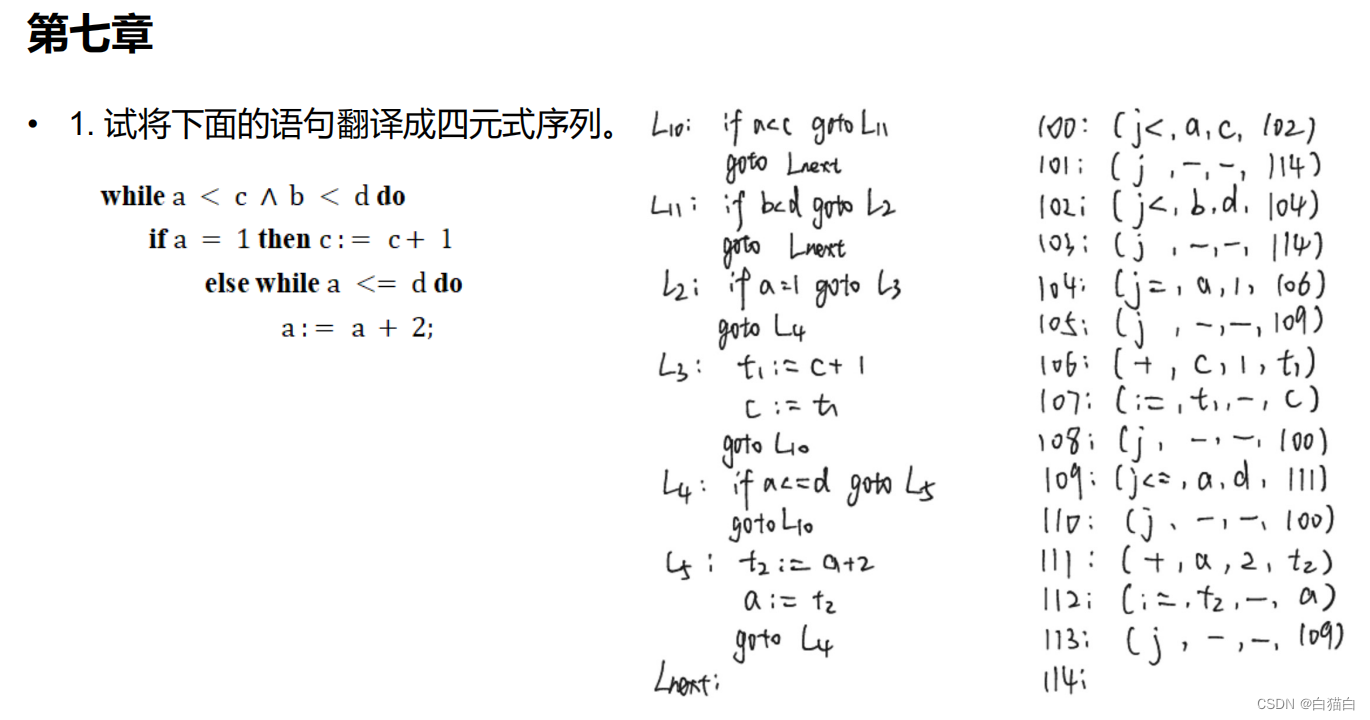 第七章
• 1. 试将下面的语句翻译成四元式序列。
while a < c ∧ b < d do
if a = 1 then c:= c+ 1
else while a <= d do
a:= a + 2;
L10: if a<c goto L11
goto Lnext
L11: if b<d goto L2
goto Lnext
L2: if a=1 goto L3
goto L4
L3: t1:= c+1
c := t1
goto L10
L4: if a<=d goto L5
goto L10
L5: t2:= a+2
a:= t2
goto L4
Lnext:
100: (j<, a, c, 102)
101: (j, -, -, 114)
102: (j<, b, d, 104)
103: (j, -, -, 114)
104: (j=, a, 1, 106)
105: (j, -, -, 109)
106: (+, c, 1, t1)
107: (:=, t1, -, c)
108: (j, -, -, 100)
109: (j<=, a, d, 111)
110: (j, -, -, 100)
111: (+, a, 2, t2)
112: (:=, t2, -, a)
113: (j, -, -, 109)
114:
CSDN @白猫白